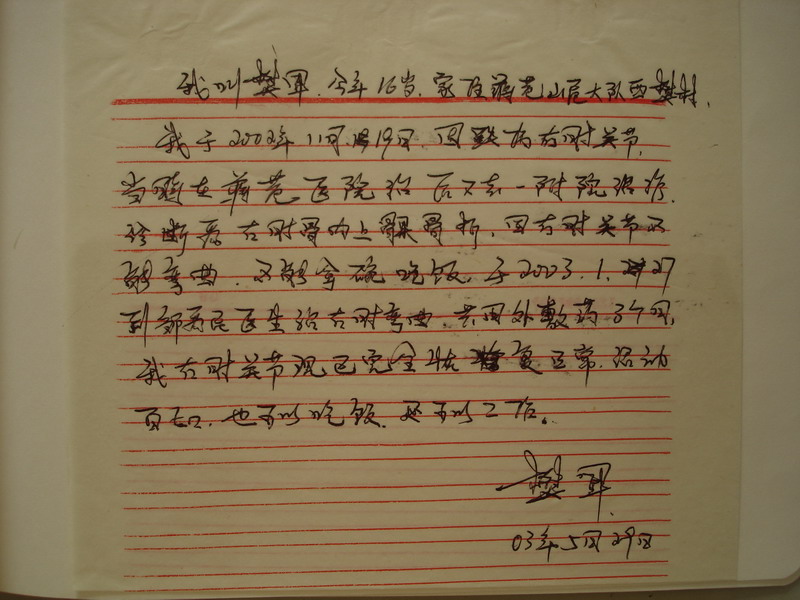 我叫樊军.今年16岁.家住蒋巷山尾大队西樊村.
我于2002年11月19日.因跌病右肘关节,
当时在蒋巷医院治后又去一附院治疗.
诊断为右肘骨内上髁骨折,因右肘关节不
能弯曲.不能拿碗吃饭,于2003.1.27
到邹 民医生治右肘弯曲,共用外敷药3个月,
我右肘关节现已完全恢复正常.活动
自如.也可以吃饭.还可以工作.
樊军.
03年5月29日